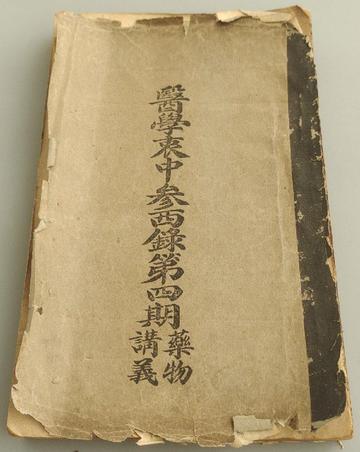 醫學衷中參西錄第四期
藥物
講義